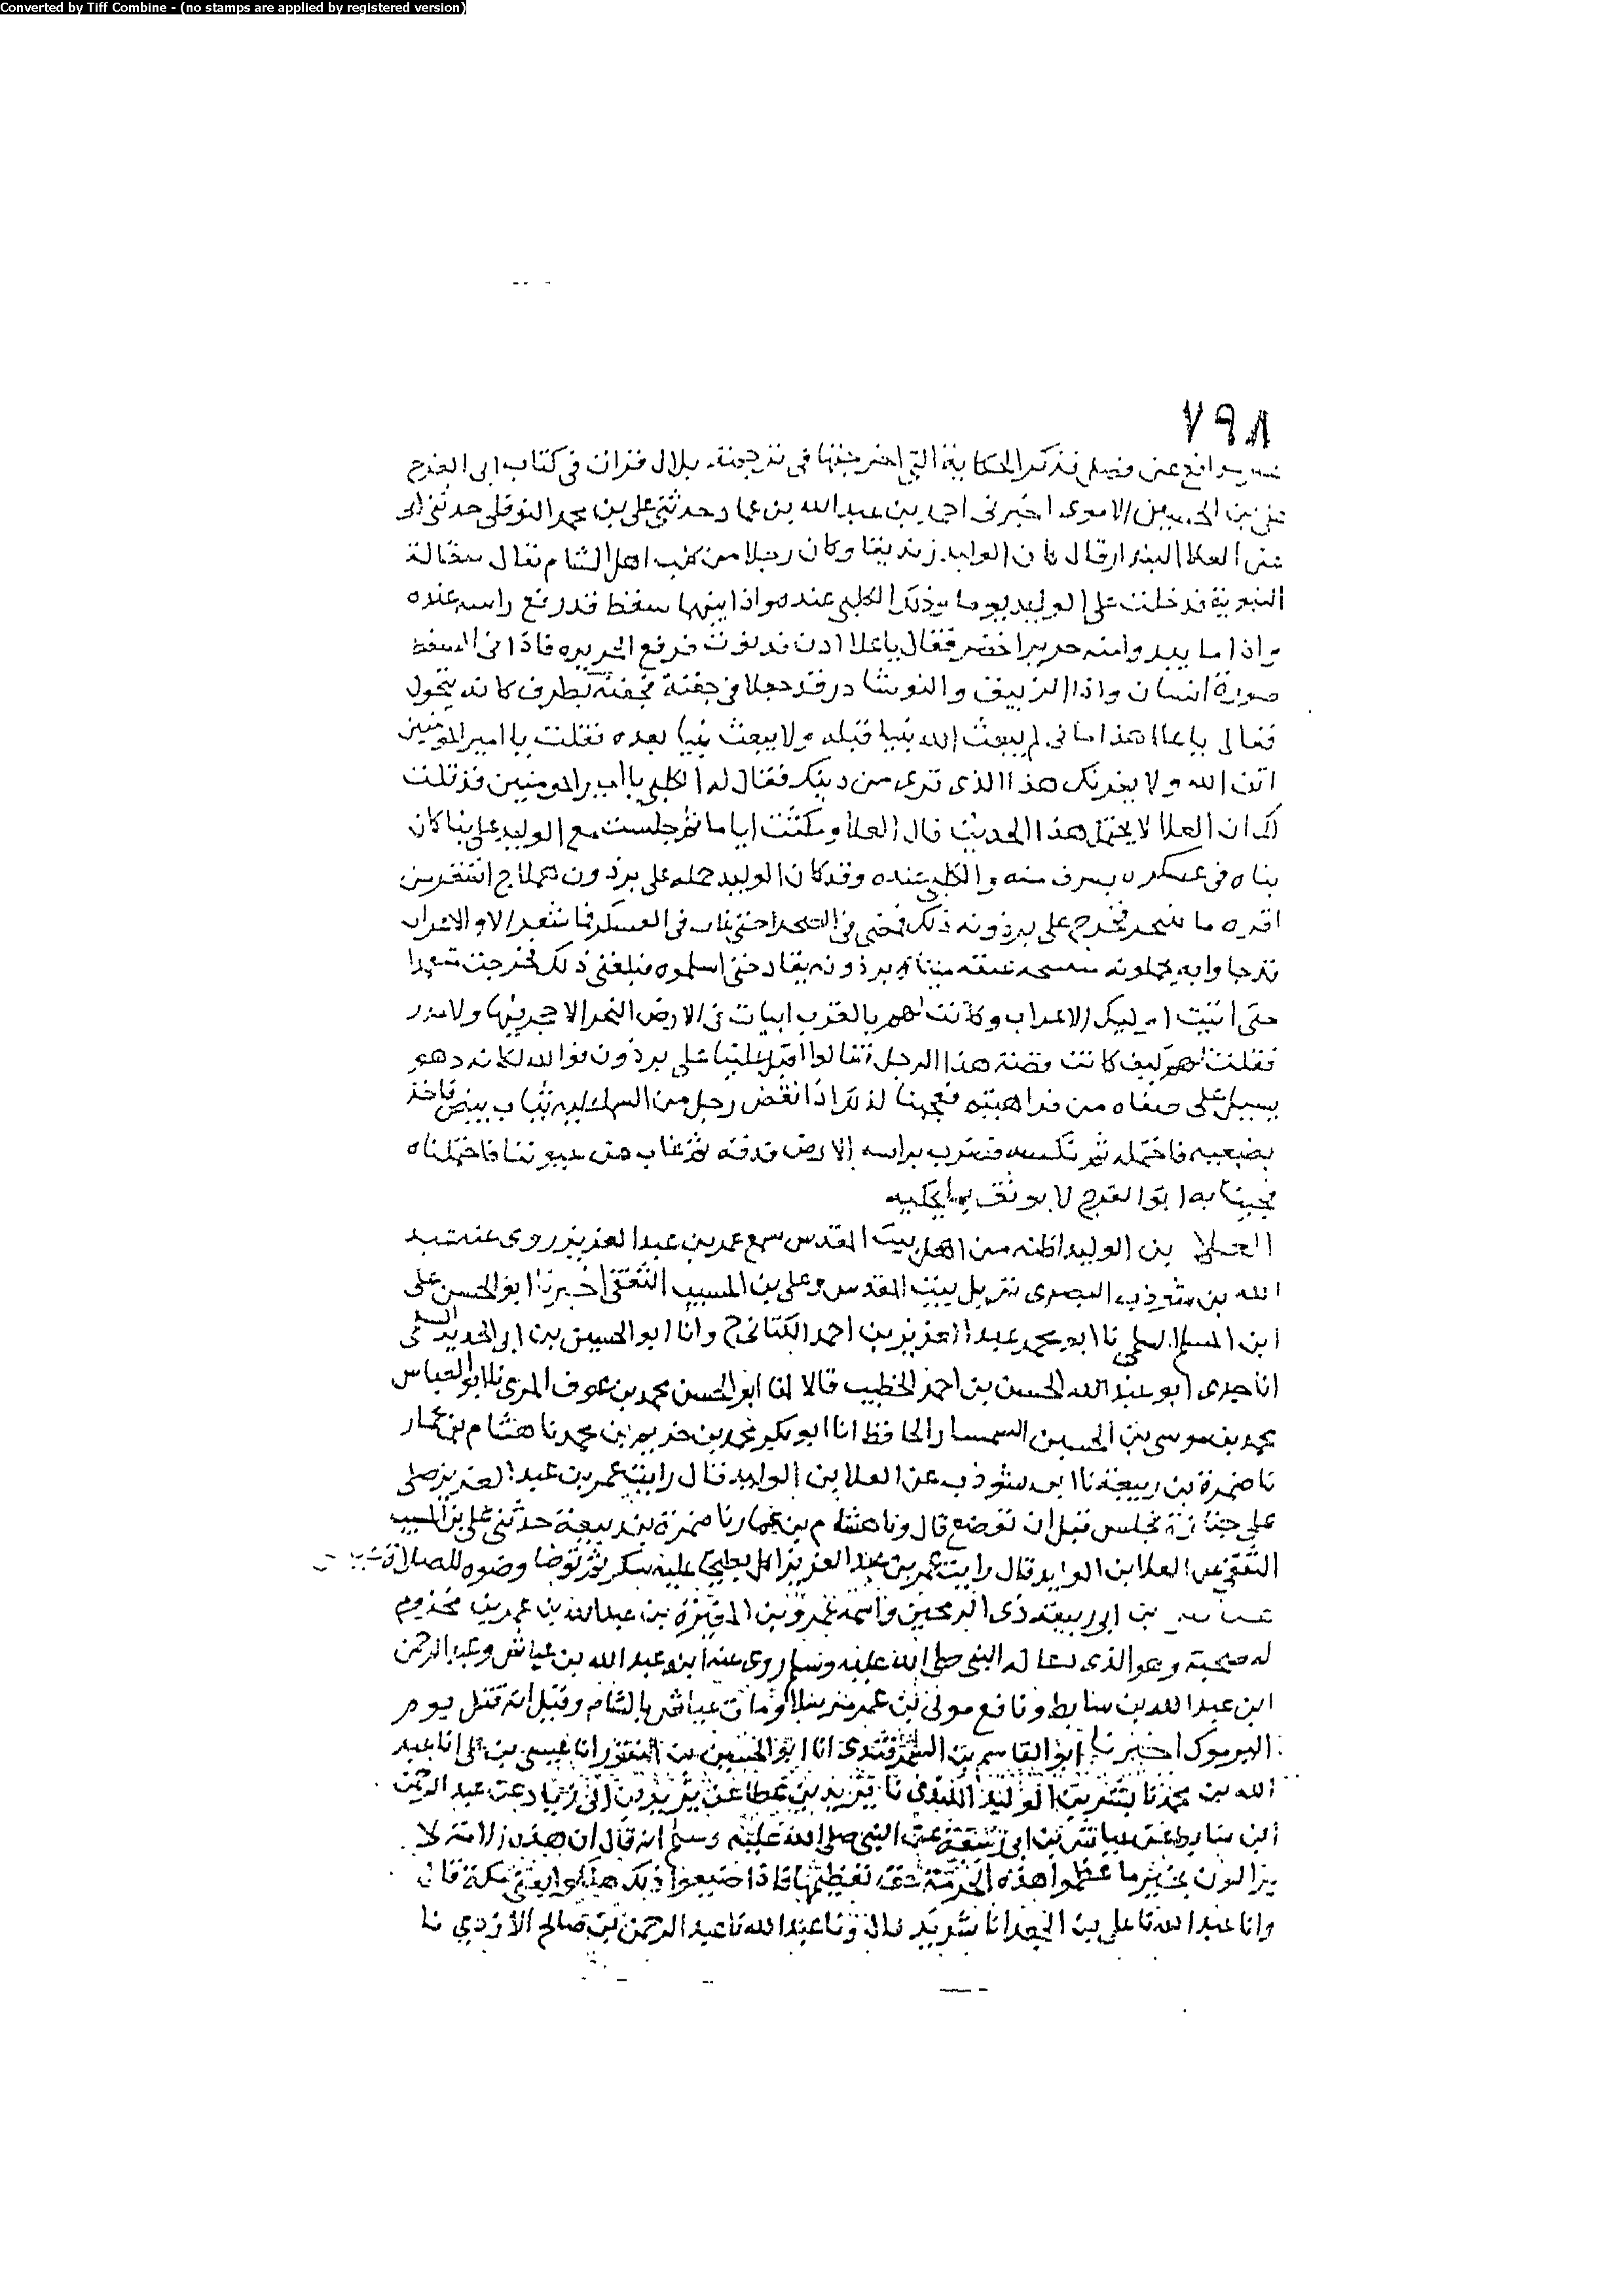 Converted by Tiff Combine - (no stamps are applied by registered version)
٧٩٨
فذكر الحكاية التي اخرجتها في ترجمة بلال قرات في كتاب ابى الفرج
على بن الحسين الاموى اخبرنى احمد بن عبد الله بن عمار حدثنى على بن محمد النوفلى حدثنى ابى
العلا البندار قال كان الوليد زنديقا وكان رجلا من كلب اهل الشام يقال مقالة
الثنوية فدخلت على الوليد يوما وذلك الكلبي عنده واذا بينهما سفط قد رفع راسه عنده
واذا ما يبدو منه حرير اخضر فقال يا علا ادن فدنوت فرفع الحريره فاذا فى السفط
صورة انسان واذا الزيبق والنوشادر قد جعلا فى جفنة فجفنه يطرف كانه يتحول
فقال يا علا هذا مانى لم يبعث الله نبيا قبله ولا يبعث نبيا بعده فقلت يا امير المومنين
اتق الله ولا يغرنك هذا الذى ترى من دينك فقال له الكلبي يا امير المومنين قد قلت
لك ان العلا لا يحتمل هذا الحديث قال العلا ومكثت اياما ثم جلست مع الوليد على بنا كان
بناه فى عسكره يشرف منه والكلبي عنده وقد كان الوليد حمله على برذون هملاج اشقر من
افره ما سخر فخرج على برذونه ذلك فمضى فى الصحرا حتى غاب فى العسكر فما شعر الا والاعراب
قد جاوا به يحملونه منفسخه عنقه ميتا وبرذونه يقاد حتى اسلموه فبلغنى ذلك فخرجت متعمدا
حتى اتيت اوليك الاعراب وكانت لهم بالقرب ابيات فى الارض البخرا لا حجر فيها ولا مدر
فقلت لهم كيف كانت قصة هذا الرجل فقالوا اقبل علينا على برذون فوالله لكانه دهن
يسيل على صفاه من فراهيته فعجبنا لذلك اذ انقض رجل من السما عليه ثياب بيض فاخذ
بضبعيه فاحتمله ثم نكسه فضرب براسه الارض فدقه ثم غاب عن عيوننا فاحتملناه
فجينا به ابو الفرج لا يوثق بما يحكيه
العلا بن الوليد اظنه من اهل بيت المقدس سمع عمر بن عبد العزيز روى عنه عبد
الله بن شوذب البصرى نزيل بيت المقدس وعلى بن المسيب الثقفى اخبرنا ابو الحسن على
ابن المسلم السلمى نا ابو محمد عبد العزيز بن احمد الكتانى ح وانا ابو الحسين بن ابى الحديد السلمى
انا جدى ابو عبد الله الحسن بن احمد الخطيب قالا انا ابو الحسن محمد بن عوف المزنى نا ابو العباس
محمد بن موسى بن الحسين السمسار الحافظ انا ابو بكر محمد بن خريم بن محمد نا هشام بن عمار
نا ضمرة بن ربيعة نا ابن شوذب عن العلا بن الوليد قال رايت عمر بن عبد العزيز صلى
على جنازة فجلس قبل ان توضع قال ونا هشام بن عمار نا ضمرة بن ربيعة حدثنى على بن المسيب
الثقفى عن العلا بن الوليد قال رايت عمر بن عبد العزيز اكل بطيخا عليه سكر ثم توضا وضوه للصلاة
عياش بن ابى ربيعة ذى الرمحين واسمه عمرو بن المغيرة بن عبد الله بن عمر بن مخزوم
له صحبة وهو الذى دعا له النبى صلى الله عليه وسلم روى عنه ابنه عبد الله بن عياش وعبد الرحمن
ابن عبد الله بن سابط ونافع مولى بن عمر مرسلا ومات عياش بالشام وقيل انه قتل يوم
اليرموك اخبرنا ابو القاسم بن السمرقندى انا ابو الحسين بن النقور انا عيسى بن على انا عبد
الله بن محمد نا بشر بن الوليد الكندى نا يزيد بن عطا عن يزيد بن ابى زياد عن عبد الرحمن
ابن سابط عن عياش بن ابى ربيعة عن النبى صلى الله عليه وسلم انه قال ان هذه الامة لا
يزالون بخير ما عظموا هذه الحرمة حق تعظيمها فاذا ضيعوا ذلك هلكوا يعنى مكة قال
وانا عبد الله نا على بن الجعد انا شريك قال ونا عبد الله نا عبد الرحمن بن صالح الازدي نا